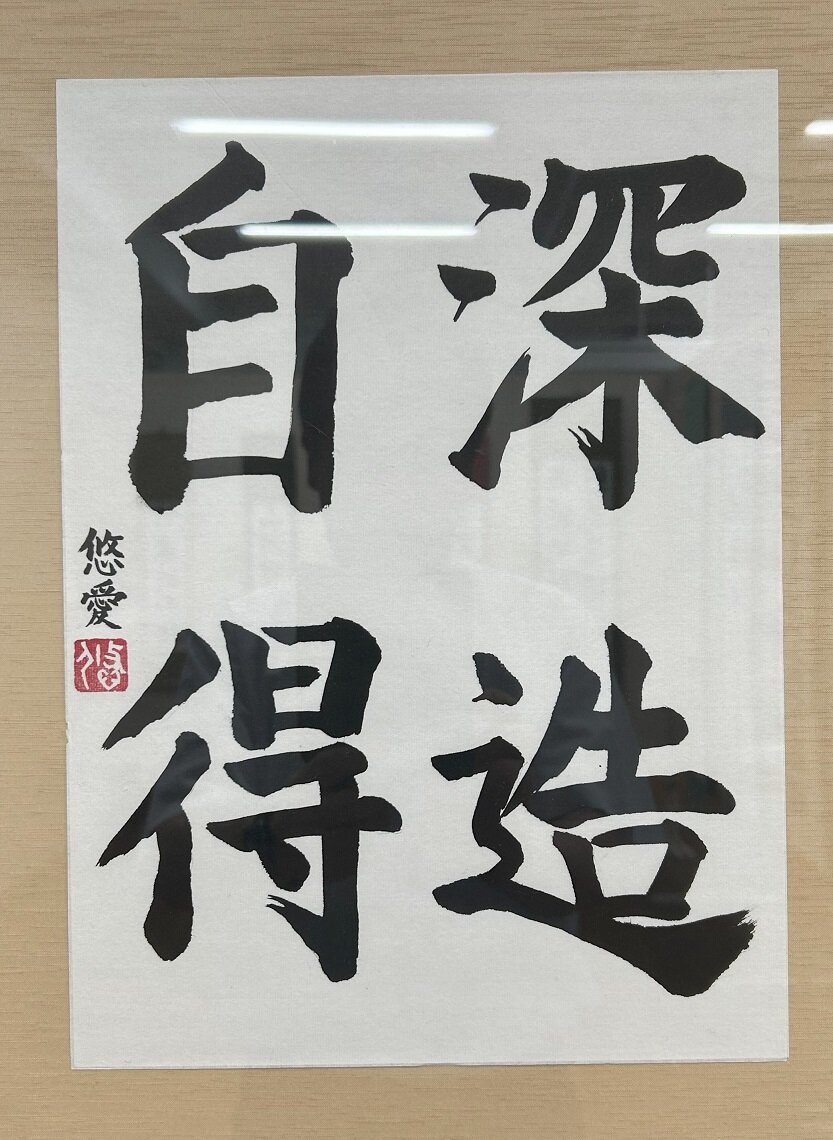 深造
自得
悠愛